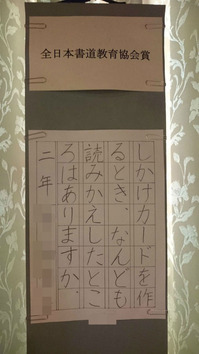 全日本書道教育協会賞
しかけカードを作
るとき、なんども
読みかえしたとこ
ろはありますか。
二年